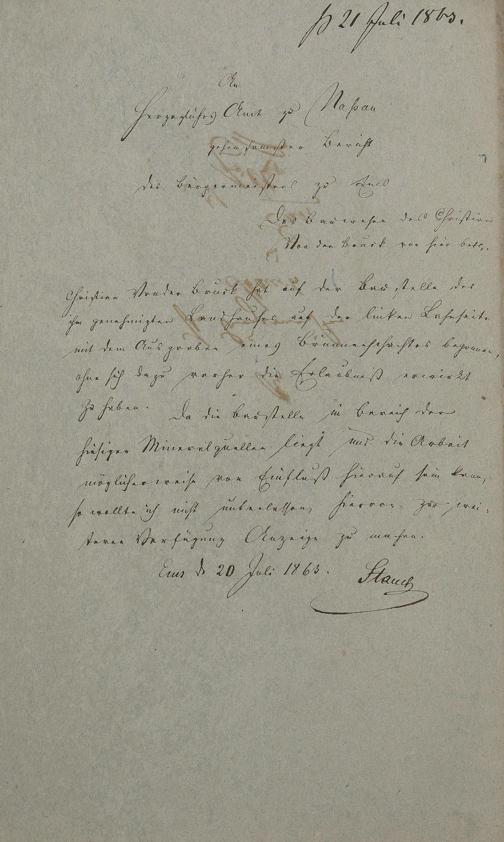 21 Juli 1863.
An
Herzogliches Amt zu Naßau
gehorsamster Bericht
des Bürgermeisters zu Ems
Das Bauwesen des Christian
Von der Bruck von hier betr.
Christian Vonder Bruck hat auf der Baustelle des
ihm genehmigten Landhauses auf der linken Lahnseite
mit dem Ausgraben eines Brunnenschachtes begonnen,
ohne sich dazu vorher die Erlaubniß erwirkt
zu haben. Da die Baustelle im Bereich der
hiesigen Mineralquellen liegt und die Arbeit
möglicherweise von Einfluß hierauf sein kann,
so wollte ich nicht unterlassen, hiervon zur wei-
teren Verfügung Anzeige zu machen.
Ems d 20 Juli 1863. Stauch